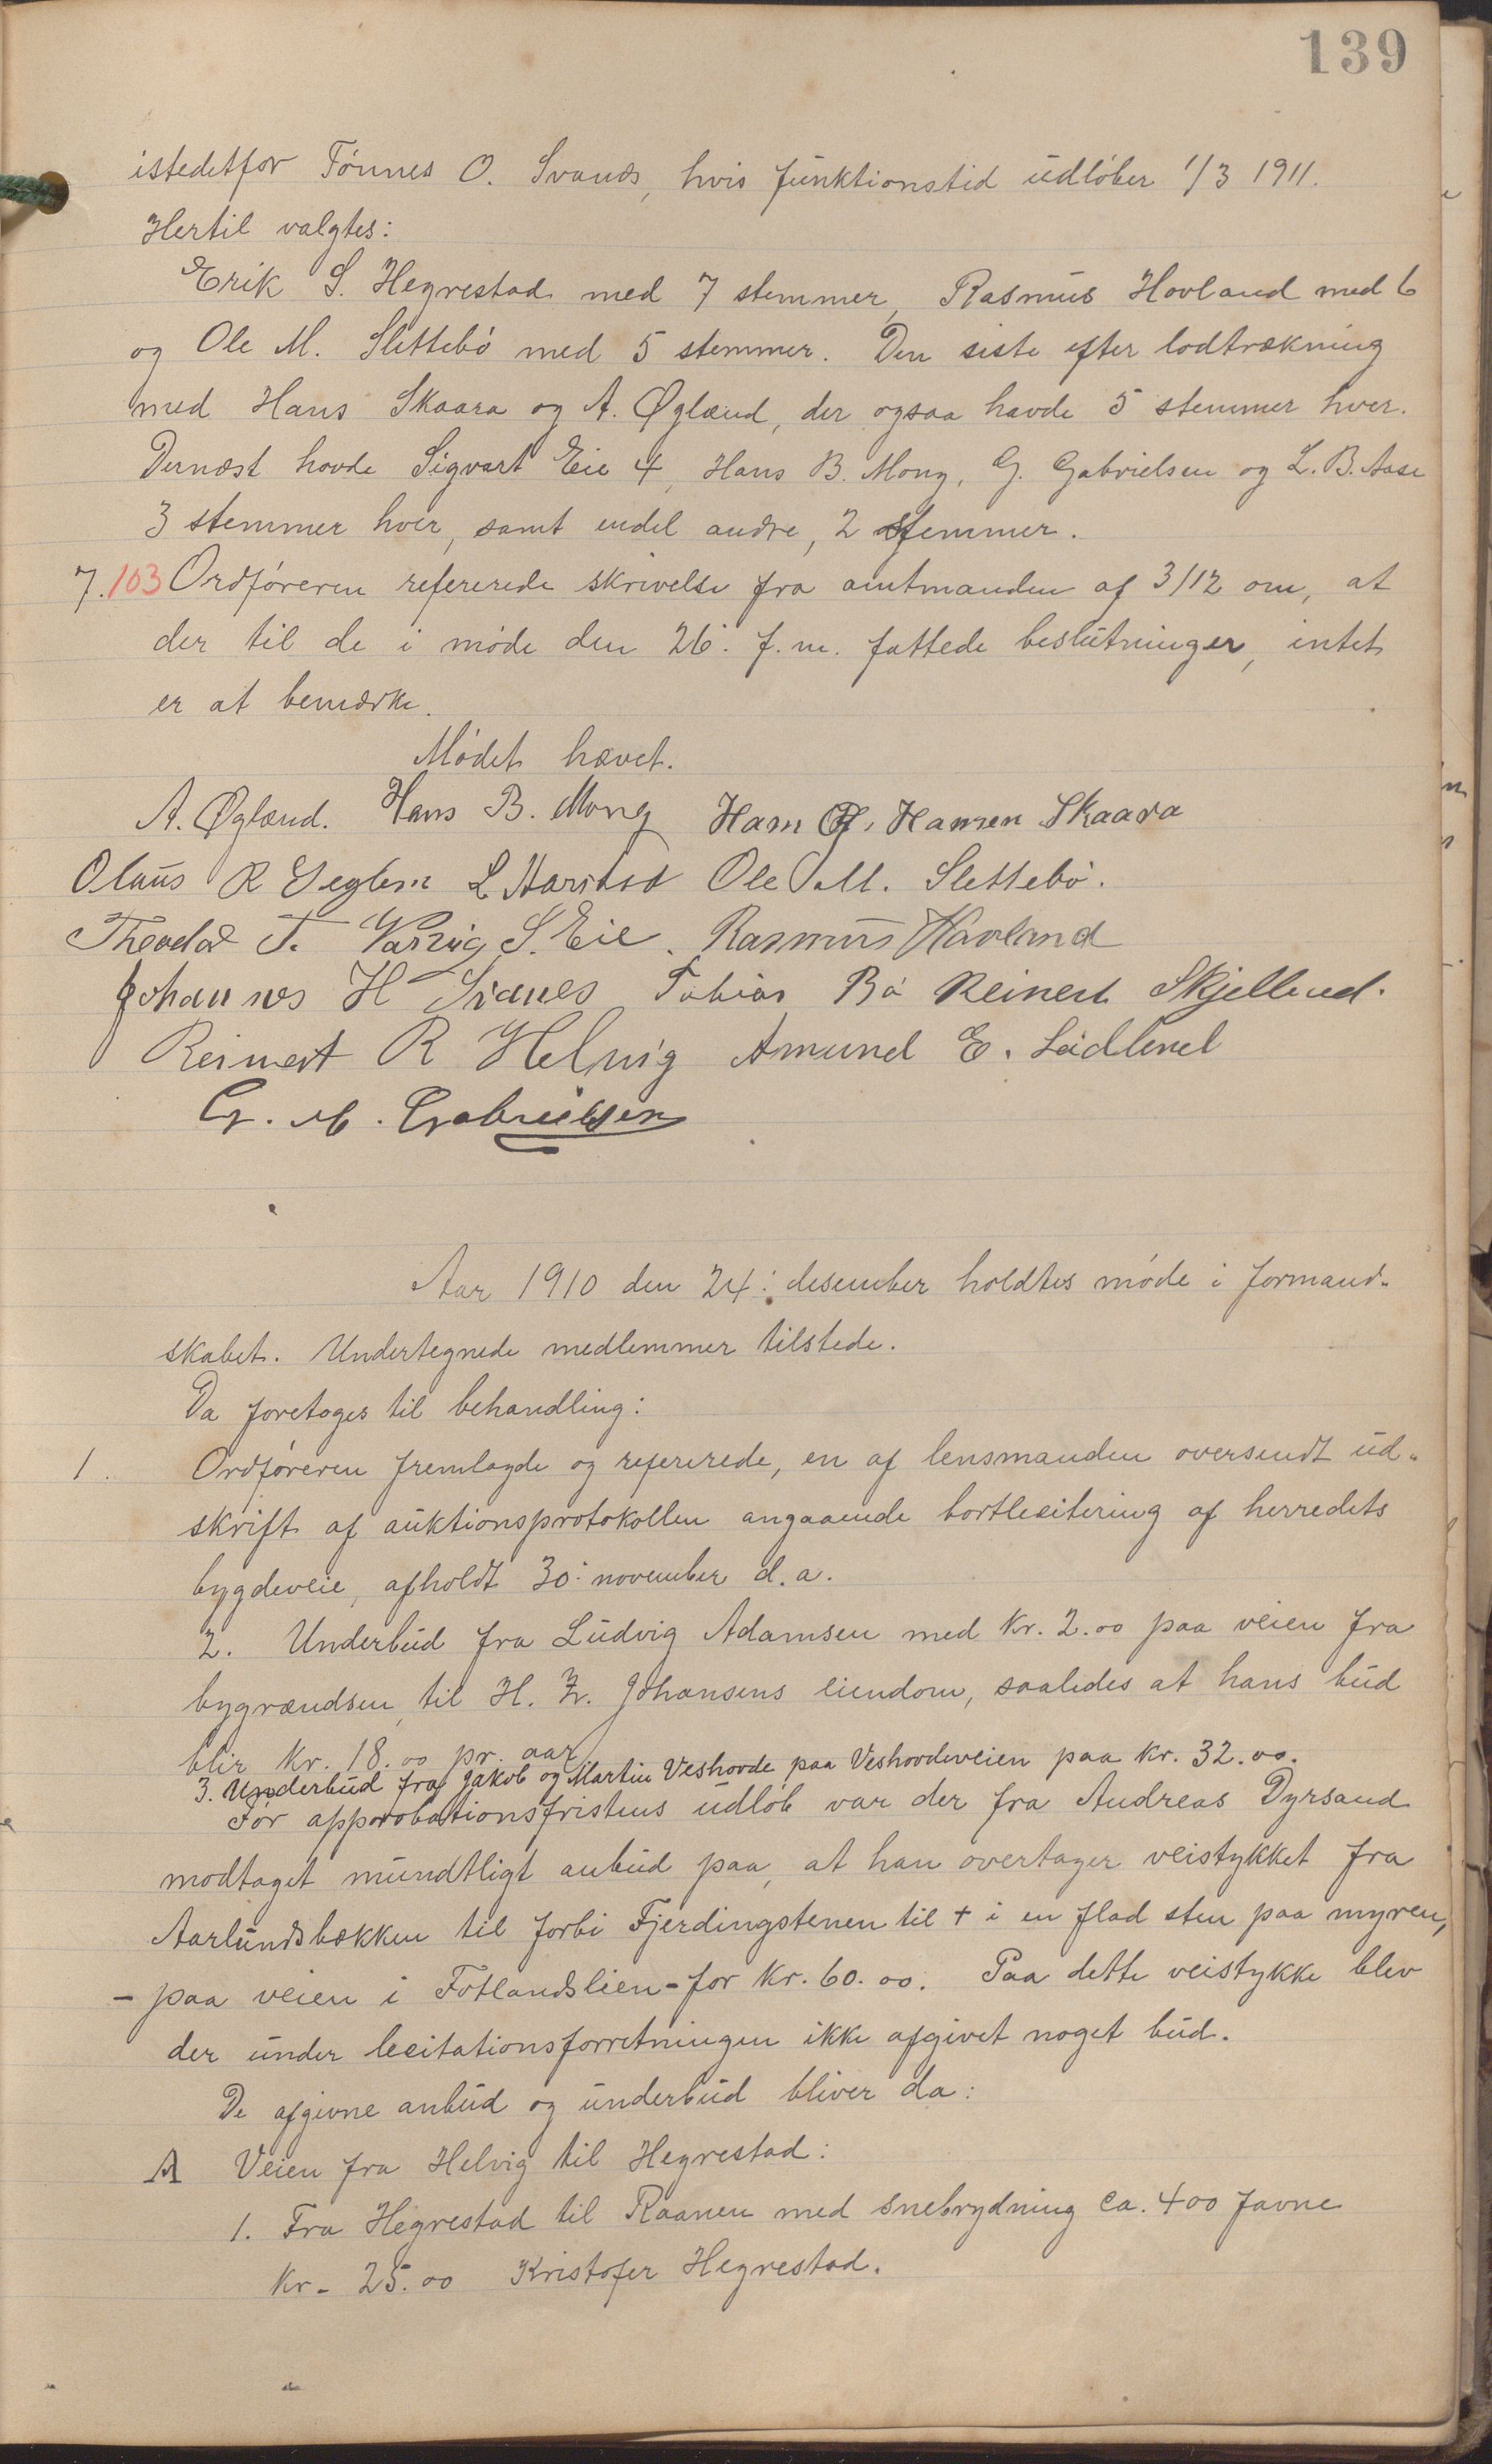 139
istedetfor Tönnes O. Svanes, hvis funktionstid udlöber 1/3 1911.
Hertil valgtes:
Erik S. Hegrestad med 7 stemmer, Rasmus Hovland med 6
og Ole M. Slettebö med 5 stemmer. Den siste efter lodtrækning
med Hans Skaara og A. Øglænd, der ogsaa havde 5 stemmer hver.
Dernæst havde Sigvart Eie 4, Hans B. Mong, G. Gabrielsen og L. B. Aase
3 stemmer hver, samt endel andre, 2 stemmer.
7. 103 Ordföreren refererede skrivelse fra amtmanden af 3/12 om, at
der til de i möde den 26: f. m. fattede beslutninger, intet
er at bemærke.
Mödet hævet.
A. Øglænd. Hans B. Mong Hans H. Hansen Skaara
Olaus R Seglem L Aarstad Ole M. Slettebö.
Theodor T. Varvig S. Eie. Rasmus Havland
Johannes H Svanes Tobias Bö Reinert Skjellend.
Reinert R Helvig Amund E. Leidlend
G. M. Gabrielsen
Aar 1910 den 24: desember holdtes möde i formand-
skabet. Undertegnede medlemmer tilstede.
Da foretoges til behandling:
1. Ordföreren fremlagde og refererede, en af lensmanden oversendt ud-
skrift af auktionsprotokollen angaaende bortlesitering af herredets
bygdeveie, afholdt 30: november d. a.
2. Underbud fra Ludvig Adamsen med Kr. 2.00 paa veien fra
bygrændsen, til H. Z. Johansens eiendom, saaledes at hans bud
blir Kr. 18.00 pr. aar
3. Underbud fra Jakob og Martin Veshovde paa Veshovdeveien paa Kr. 32.00.
För approbationsfristens udlöb var der fra Andreas Dyrsand
modtaget mundtligt anbud paa, at han overtager veistykket fra
Aarlundsbækken til forbi Fjerdingstenen til + i en flad sten paa myren,
- paa veien i Fotlandslien - for Kr. 60.00. Paa dette veistykke blev
der under lesitationsforretningen ikke afgivet noget bud.
De afgivne anbud og underbud bliver da:
A Veien fra Helvig til Hegrestad:
1. Fra Hegrestad til Raanen med snebrydning ca. 400 favne
Kr- 25.00 Kristofer Hegrestad.